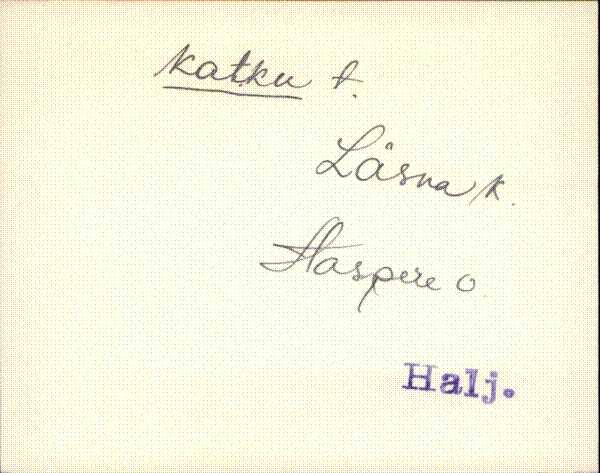 Katku t.
Läsna k.
Haspere o
Halj.